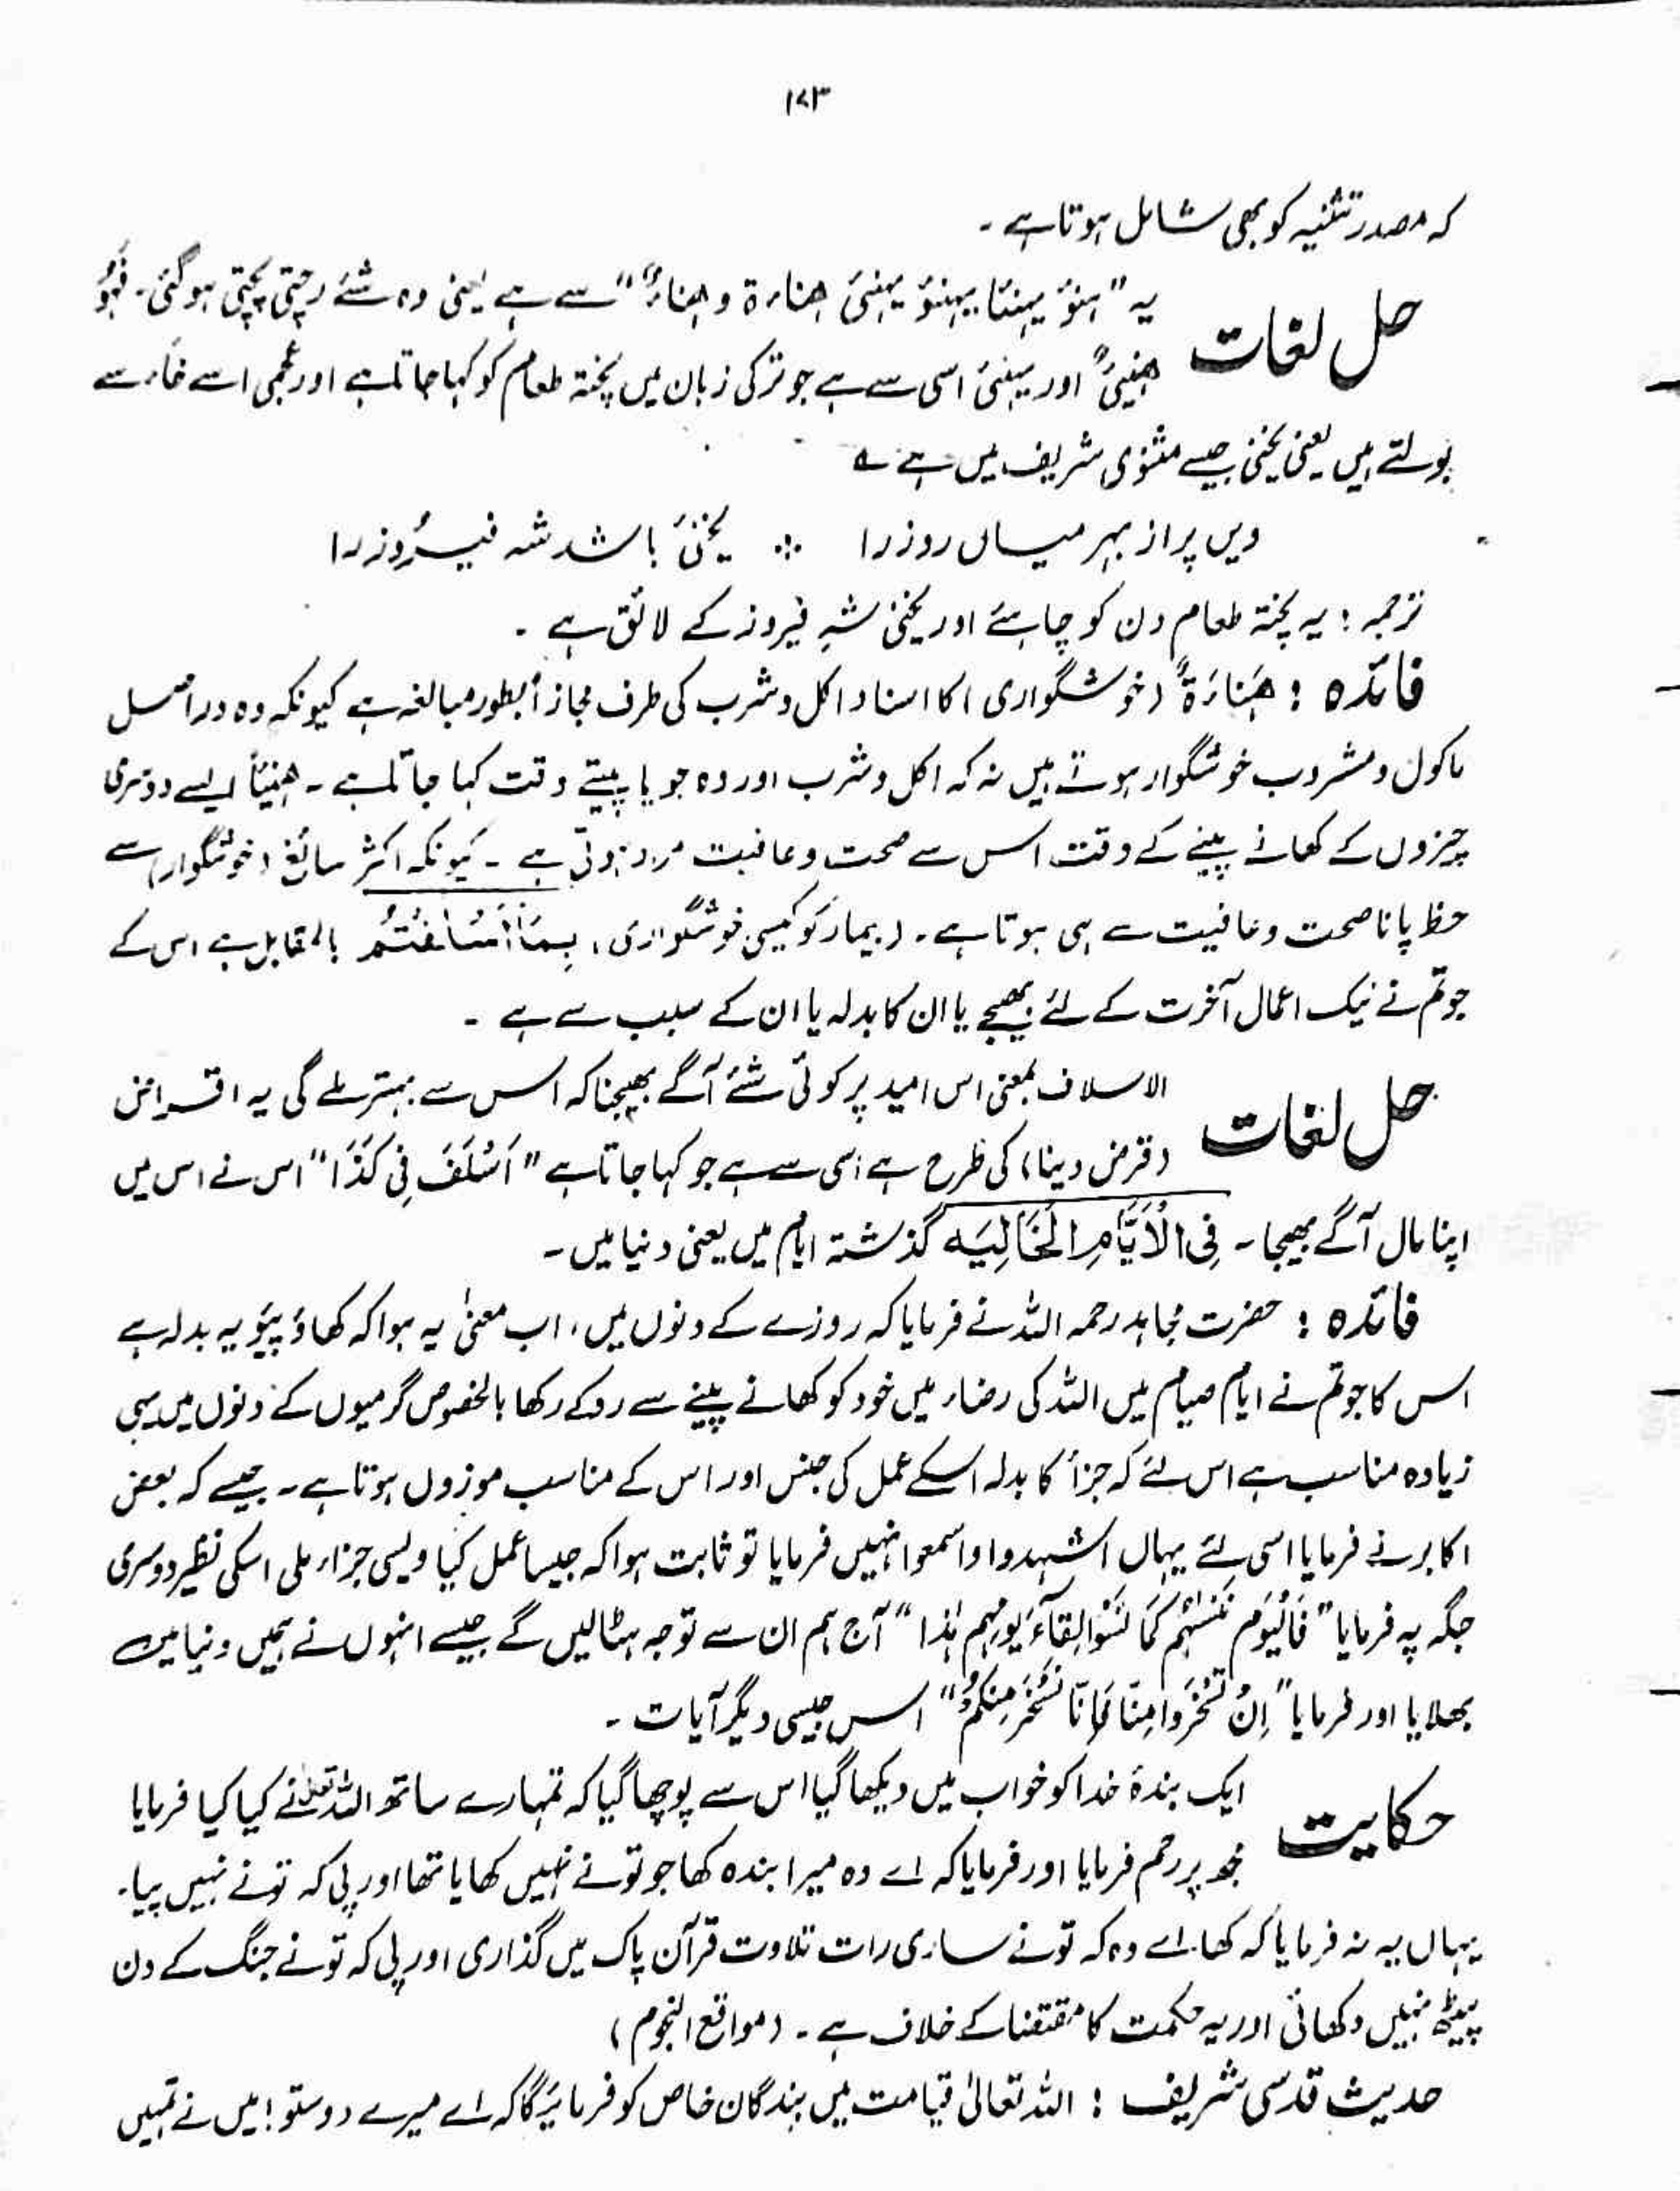 ۱۷۳
کہ مصدر تثنیہ کو بھی شامل ہوتا ہے ۔
حل لغات
یہ " ہنؤ یہنئا یہنؤ یہنئ ھناءۃ و ھناءً " سے ہے یعنی وہ شئے رچتی پچتی ہو گئی ۔ فَہُوَ
ھنیئٌ اور یہنئ اسی سے ہے جو ترکی زبان میں پختہ طعام کو کہا جاتا ہے اور عجمی اسے خاء سے
بولتے ہیں یعنی یخنی جیسے مثنوی شریف میں ہے ؎
ویں پر از بہر میاں روز را ∴ یخنیٔ باشد شہ فیروز را
ترجمہ : یہ پختہ طعام دن کو چاہئے اور یخنی شہِ فیروز کے لائق ہے ۔
فائدہ : ھَنَاءَۃٌ ( خوشگواری ) کا اسناد اکل و شرب کی طرف مجازاً بطور مبالغہ ہے کیونکہ وہ دراصل
ماکول و مشروب خوشگوار ہوتے ہیں نہ کہ اکل و شرب اور وہ جو یا پیتے وقت کہا جاتا ہے ۔ ھنیئاً ایسے دوسری
چیزوں کے کھانے پینے کے وقت اس سے صحت و عافیت مراد ہوتی ہے ۔ کیونکہ اکثر سائغ ( خوشگوار ) سے
حظ پانا صحت و عافیت سے ہی ہوتا ہے ۔ ( بیمار کو کیسی خوشگواری ) بِمَا اَسْلَفْتُمْ بالمقابل ہے اس کے
جو تم نے نیک اعمال آخرت کے لئے بھیجے یا ان کا بدلہ یا ان کے سبب سے ہے ۔
حل لغات
الاسلاف بمعنی اس امید پر کوئی شئے آگے بھیجنا کہ اس سے بہتر ملے گی یہ اقراض
( قرض دینا ) کی طرح ہے اسی سے ہے جو کہا جاتا ہے " اَسْلَفَ فِی کَذَا " اس نے اس میں
اپنا مال آگے بھیجا ۔ فِی الْاَیَّامِ الْخَالِیَہ گذشتہ ایام میں یعنی دنیا میں ۔
فائدہ : حضرت مجاہد رحمہ اللہ نے فرمایا کہ روزے کے دنوں میں ، اب معنیٰ یہ ہوا کہ کھاؤ پیئو یہ بدلہ ہے
اس کا جو تم نے ایام صیام میں اللہ کی رضاء میں خود کو کھانے پینے سے روکے رکھا بالخصوص گرمیوں کے دنوں میں یہی
زیادہ مناسب ہے اس لئے کہ جزأ کا بدلہ اسکے عمل کی جنس اور اس کے مناسب موزوں ہوتا ہے ۔ جیسے کہ بعض
اکابر نے فرمایا اسی لئے یہاں اشہدوا واسمعوا نہیں فرمایا تو ثابت ہوا کہ جیسا عمل کیا ویسی جزاء ملی اسکی نظیر دوسری
جگہ پہ فرمایا " فَالْیَوْمَ نَنْسٰہُمْ کَمَا نَسُوْا لِقَآءَ یَوْمِہِمْ ہٰذَا " آج ہم ان سے توجہ ہٹالیں گے جیسے انہوں نے ہمیں دنیا میں
بھلایا اور فرمایا " اِنْ تَسْخَرُوْا مِنَّا فَاِنَّا نَسْخَرُ مِنْکُمْ " اس جیسی دیگر آیات ۔
حکایت
ایک بندۂ خدا کو خواب میں دیکھا گیا اس سے پوچھا گیا کہ تمہارے ساتھ اللہ تعالیٰ نے کیا کیا فرمایا
مجھ پر رحم فرمایا اور فرمایا کہ اے وہ میرا بندہ کھا جو تو نے نہیں کھایا تھا اور پی کہ تونے نہیں پیا ۔
یہاں یہ نہ فرمایا کہ کھا اے وہ کہ تونے ساری رات تلاوت قرآن پاک میں گذاری اور پی کہ تونے جنگ کے دن
پیٹھ نہیں دکھائی اور یہ حکمت کا مقتضا کے خلاف ہے ۔ ( مواقع النجوم )
حدیث قدسی شریف : اللہ تعالیٰ قیامت میں بندگان خاص کو فرمائیگا کہ اے میرے دوستو ! میں نے تمہیں